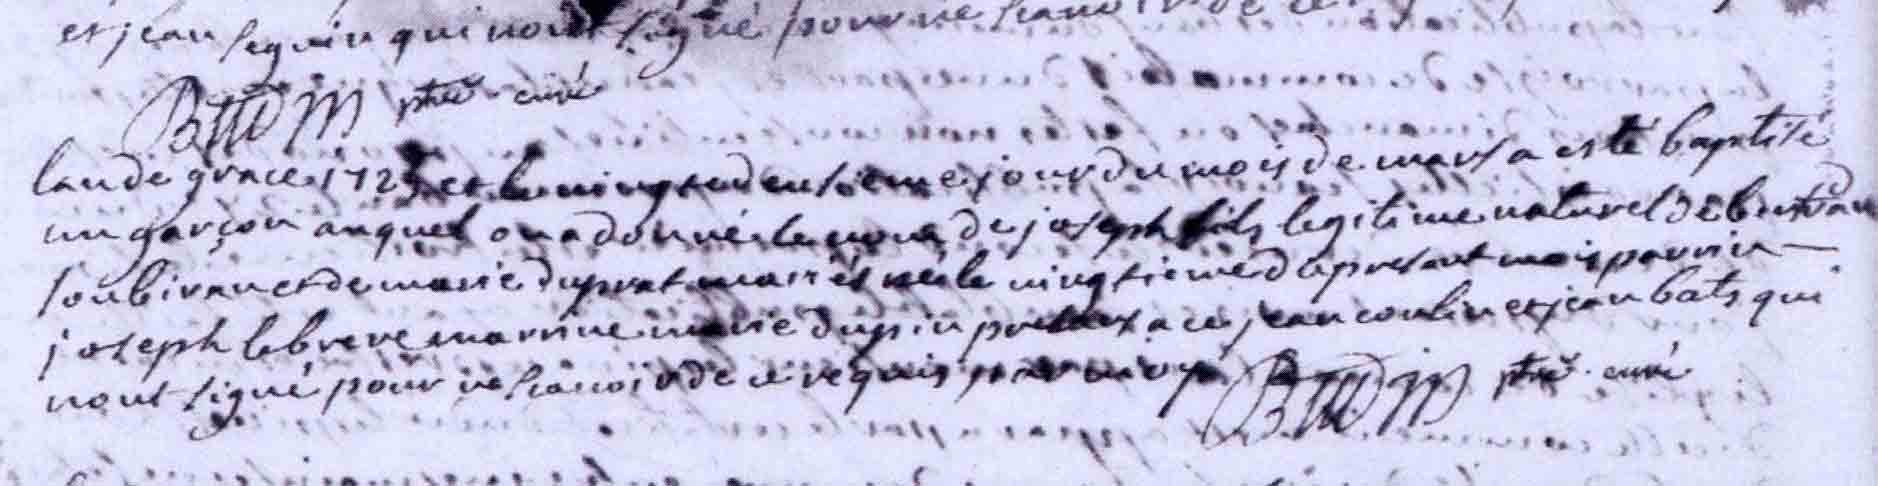 et jean seguin qui nont signé pour ne scauoir de ce
ptre curé
lan de grace 172 et le vingt et deusieme jour du mois de mars a esté baptisé
un garçon auquel on a donné le nom de joseph fils legitime naturel de bertrand
soubiran et de marie duprat mariés né le vingtieme du present mois parrin
joseph lebrere marrine marie dupin presents a ce jean coulin et jean bats qui
nont signé pour ne scauoir de ce requis par moy
ptre curé